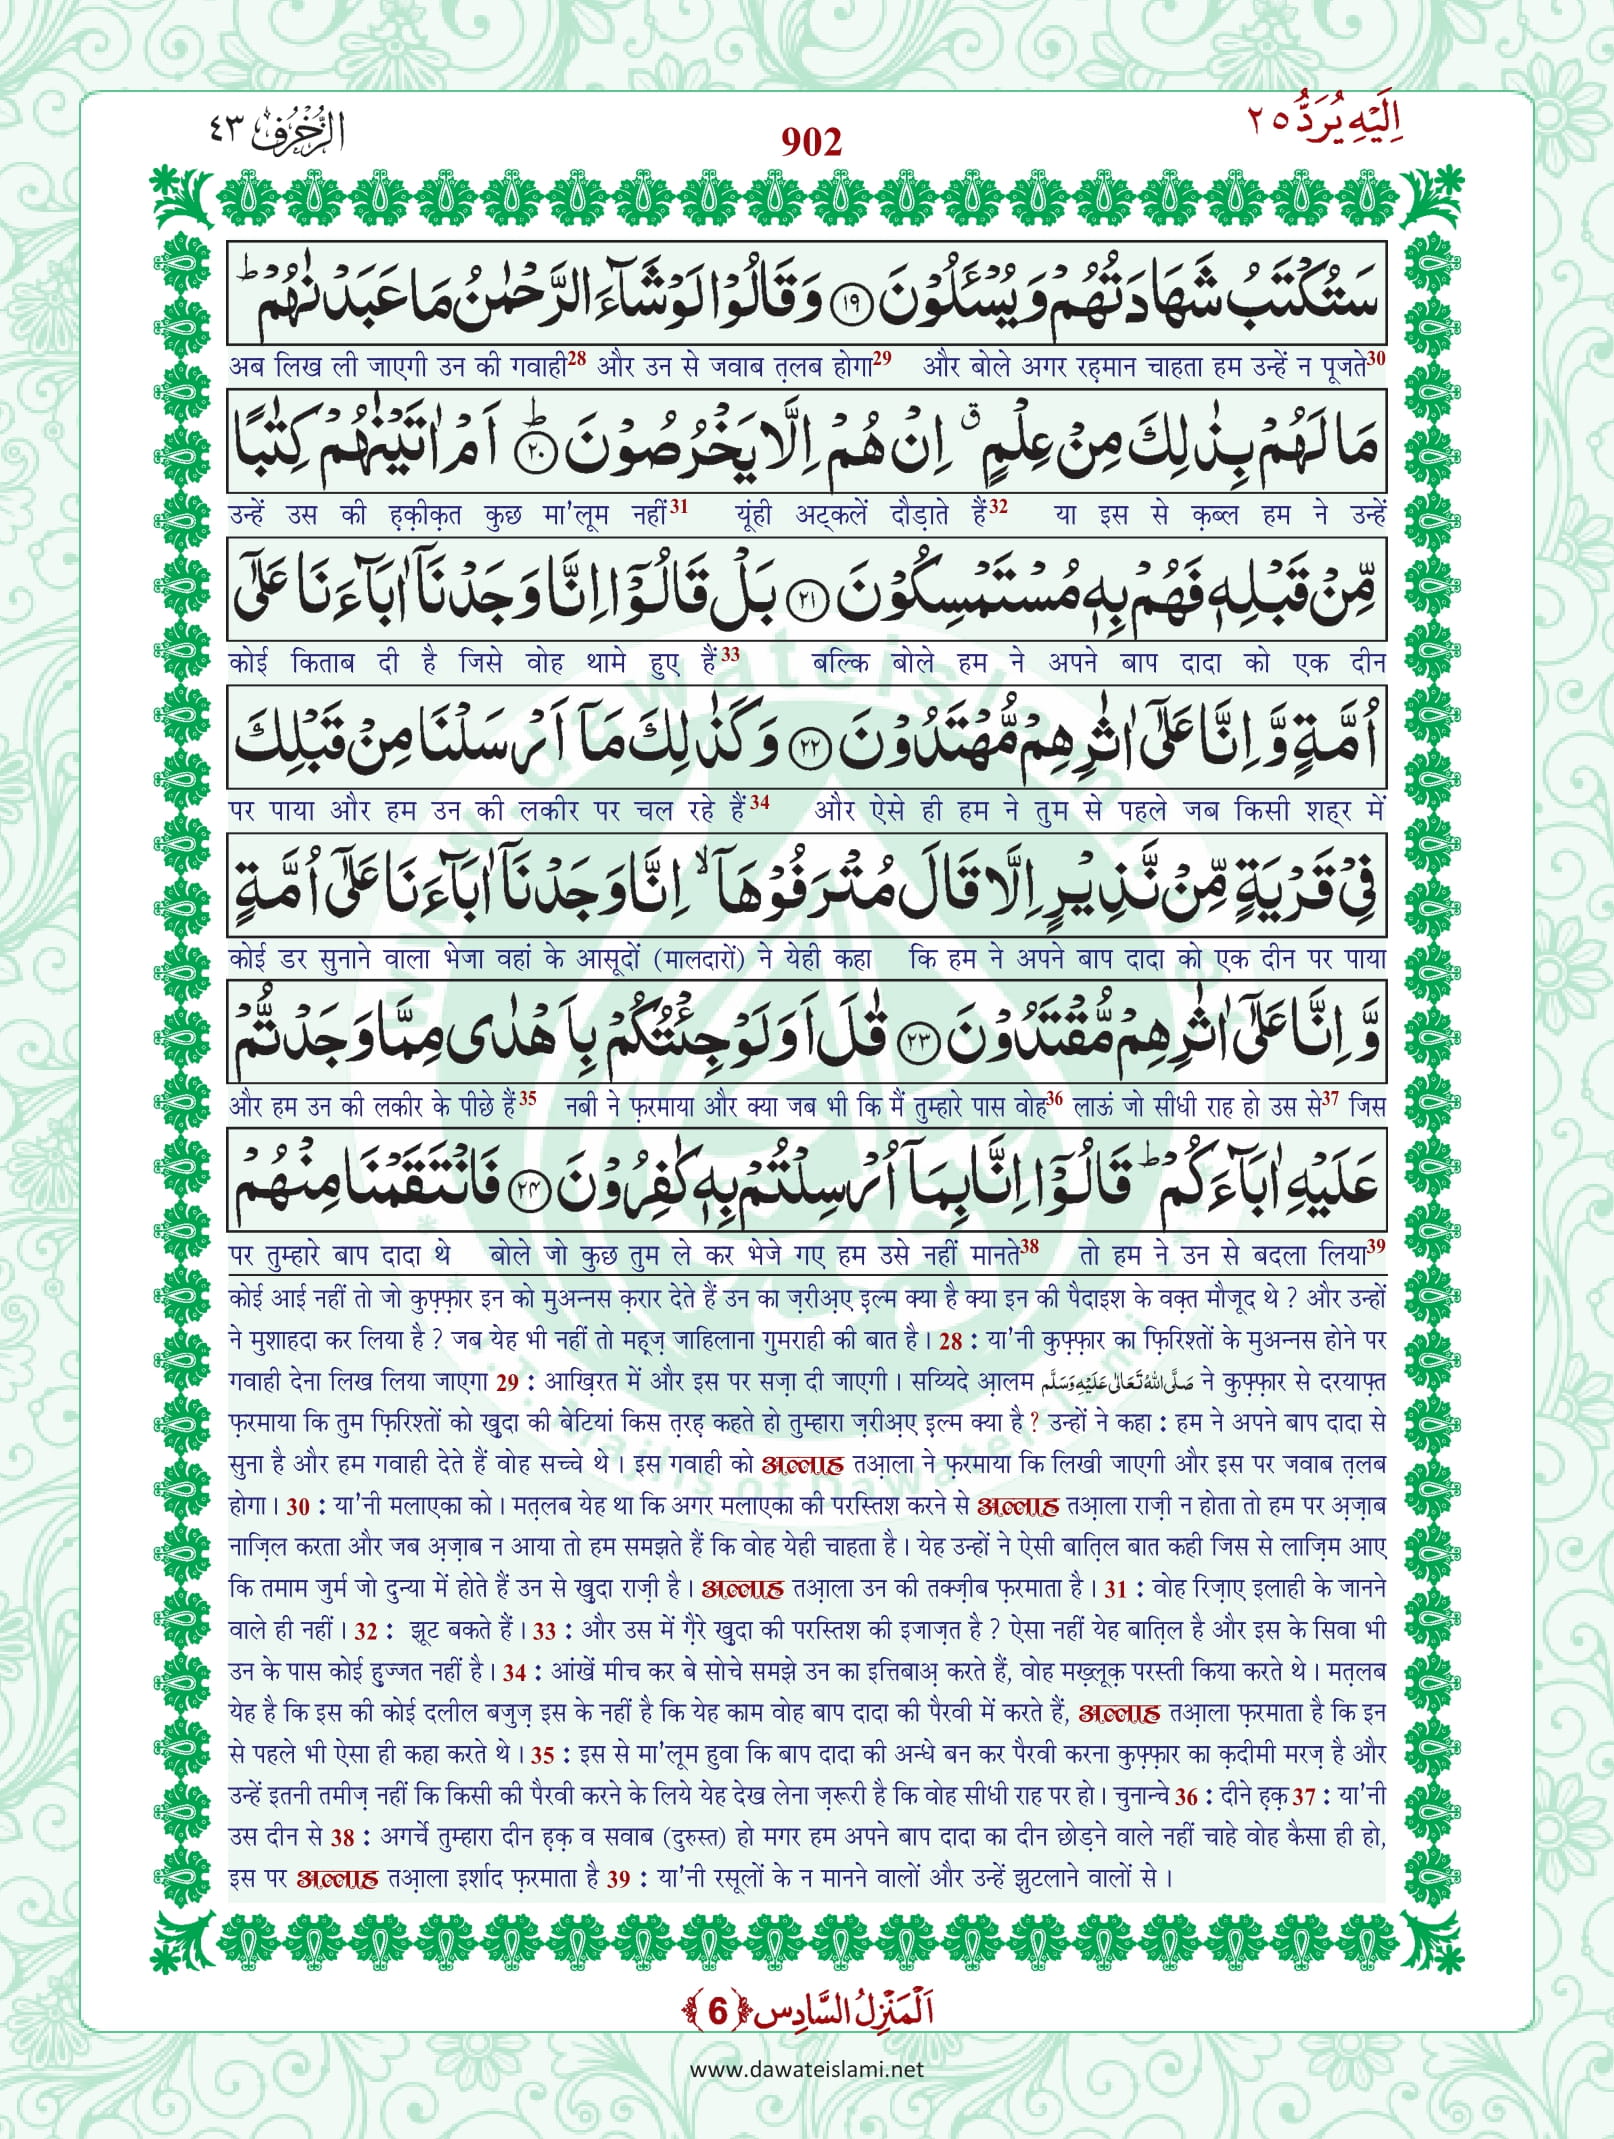 الزُّخْرُف ٤٣
902
اِلَيْهِ يُرَدُّ ٢٥
سَتُكْتَبُ شَهَادَتُهُمْ وَيُسْـَٔلُوْنَ ﴿۱۹﴾ وَقَالُوْا لَوْ شَآءَ الرَّحْمٰنُ مَا عَبَدْنٰهُمْ ؕ
अब लिख ली जाएगी उन की गवाही28 और उन से जवाब त़लब होगा29 और बोले अगर रह़मान चाहता हम उन्हें न पूजते30
مَا لَهُمْ بِذٰلِكَ مِنْ عِلْمٍ ۗ اِنْ هُمْ اِلَّا يَخْرُصُوْنَ ﴿۲۰﴾ؕ اَمْ اٰتَيْنٰهُمْ كِتٰبًا
उन्हें उस की ह़क़ीक़त कुछ मा'लूम नहीं31 यूंही अट्कलें दौड़ाते हैं32 या इस से क़ब्ल हम ने उन्हें
مِّنْ قَبْلِهٖ فَهُمْ بِهٖ مُسْتَمْسِكُوْنَ ﴿۲۱﴾ بَلْ قَالُوْۤا اِنَّا وَجَدْنَاۤ اٰبَآءَنَا عَلٰۤى
कोई किताब दी है जिसे वोह थामे हुए हैं33 बल्कि बोले हम ने अपने बाप दादा को एक दीन
اُمَّةٍ وَّ اِنَّا عَلٰۤى اٰثٰرِهِمْ مُّهْتَدُوْنَ ﴿۲۲﴾ وَكَذٰلِكَ مَاۤ اَرْسَلْنَا مِنْ قَبْلِكَ
पर पाया और हम उन की लकीर पर चल रहे हैं34 और ऐसे ही हम ने तुम से पहले जब किसी शह्‌र में
فِيْ قَرْيَةٍ مِّنْ نَّذِيْرٍ اِلَّا قَالَ مُتْرَفُوْهَاۤ ۙ اِنَّا وَجَدْنَاۤ اٰبَآءَنَا عَلٰۤى اُمَّةٍ
कोई डर सुनाने वाला भेजा वहां के आसूदों (मालदारों) ने येही कहा कि हम ने अपने बाप दादा को एक दीन पर पाया
وَّ اِنَّا عَلٰۤى اٰثٰرِهِمْ مُّقْتَدُوْنَ ﴿۲۳﴾ قٰلَ اَوَلَوْ جِئْتُكُمْ بِاَهْدٰى مِمَّا وَجَدْتُّمْ
और हम उन की लकीर के पीछे हैं35 नबी ने फ़रमाया और क्या जब भी कि मैं तुम्हारे पास वोह36 लाऊं जो सीधी राह हो उस से37 जिस
عَلَيْهِ اٰبَآءَكُمْ ؕ قَالُوْۤا اِنَّا بِمَاۤ اُرْسِلْتُمْ بِهٖ كٰفِرُوْنَ ﴿۲۴﴾ فَانْتَقَمْنَا مِنْهُمْ
पर तुम्हारे बाप दादा थे बोले जो कुछ तुम ले कर भेजे गए हम उसे नहीं मानते38 तो हम ने उन से बदला लिया39
कोई आई नहीं तो जो कुफ़्फ़ार इन को मुअन्नस क़रार देते हैं उन का ज़रीअ़ए इल्म क्या है क्या इन की पैदाइश के वक़्त मौजूद थे ? और उन्हों
ने मुशाहदा कर लिया है ? जब येह भी नहीं तो मह़्ज़ जाहिलाना गुमराही की बात है। 28 : या'नी कुफ़्फ़ार का फ़िरिश्तों के मुअन्नस होने पर
गवाही देना लिख लिया जाएगा 29 : आख़िरत में और इस पर सज़ा दी जाएगी। सय्यिदे आ़लम صَلَّى اللهُ تَعَالٰى عَلَيْهِ وَسَلَّم ने कुफ़्फ़ार से दरयाफ़्त
फ़रमाया कि तुम फ़िरिश्तों को ख़ुदा की बेटियां किस त़रह़ कहते हो तुम्हारा ज़रीअ़ए इल्म क्या है ? उन्हों ने कहा : हम ने अपने बाप दादा से
सुना है और हम गवाही देते हैं वोह सच्चे थे। इस गवाही को अल्लाह तआ़ला ने फ़रमाया कि लिखी जाएगी और इस पर जवाब त़लब
होगा। 30 : या'नी मलाएका को। मत़लब येह था कि अगर मलाएका की परस्तिश करने से अल्लाह तआ़ला राज़ी न होता तो हम पर अ़ज़ाब
नाज़िल करता और जब अ़ज़ाब न आया तो हम समझते हैं कि वोह येही चाहता है। येह उन्हों ने ऐसी बात़िल बात कही जिस से लाज़िम आए
कि तमाम जुर्म जो दुन्या में होते हैं उन से ख़ुदा राज़ी है। अल्लाह तआ़ला उन की तक्ज़ीब फ़रमाता है। 31 : वोह रिज़ाए इलाही के जानने
वाले ही नहीं। 32 : झूट बकते हैं। 33 : और उस में ग़ैरे ख़ुदा की परस्तिश की इजाज़त है ? ऐसा नहीं येह बात़िल है और इस के सिवा भी
उन के पास कोई हुज्जत नहीं है। 34 : आंखें मीच कर बे सोचे समझे उन का इत्तिबाअ़ करते हैं, वोह मख़्लूक़ परस्ती किया करते थे। मत़लब
येह है कि इस की कोई दलील बजुज़ इस के नहीं है कि येह काम वोह बाप दादा की पैरवी में करते हैं, अल्लाह तआ़ला फ़रमाता है कि इन
से पहले भी ऐसा ही कहा करते थे। 35 : इस से मा'लूम हुवा कि बाप दादा की अन्धे बन कर पैरवी करना कुफ़्फ़ार का क़दीमी मरज़ है और
उन्हें इतनी तमीज़ नहीं कि किसी की पैरवी करने के लिये येह देख लेना ज़रूरी है कि वोह सीधी राह पर हो। चुनान्चे 36 : दीने ह़क़ 37 : या'नी
उस दीन से 38 : अगर्चे तुम्हारा दीन ह़क़ व सवाब (दुरुस्त) हो मगर हम अपने बाप दादा का दीन छोड़ने वाले नहीं चाहे वोह कैसा ही हो,
इस पर अल्लाह तआ़ला इर्शाद फ़रमाता है 39 : या'नी रसूलों के न मानने वालों और उन्हें झुटलाने वालों से।
اَلْمَنْزِلُ السَّادِس ﴿6﴾
www.dawateislami.net